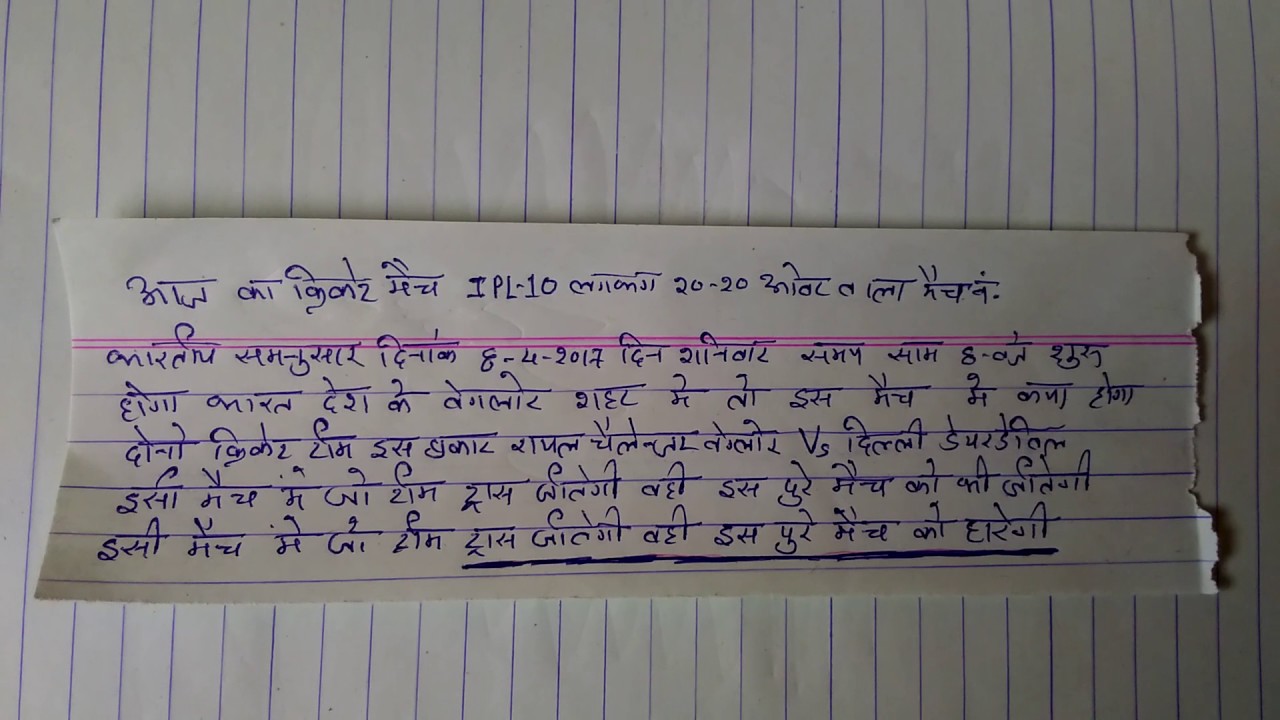 आज का क्रिकेट मैच IPL-10 लगभग 20-20 ओवर वाला मैच नं.
भारतीय समनुसार दिनांक 8-4-2017 दिन शनिवार समय साम 8-बजे शुरू
होगा भारत देश के वेगलोर शहर मे तो इस मैच मे क्या होगा
दोनो क्रिकेट टीम इस प्रकार रायल चैलेन्जर वेग्लोर Vs दिल्ली डेयरडेविल
इसी मैच में जो टीम ट्रास जीतेगी वही इस पुरे मैच को भी जीतेगी
इसी मैच में जो टीम ट्रास जीतेगी वही इस पुरे मैच को हारेगी